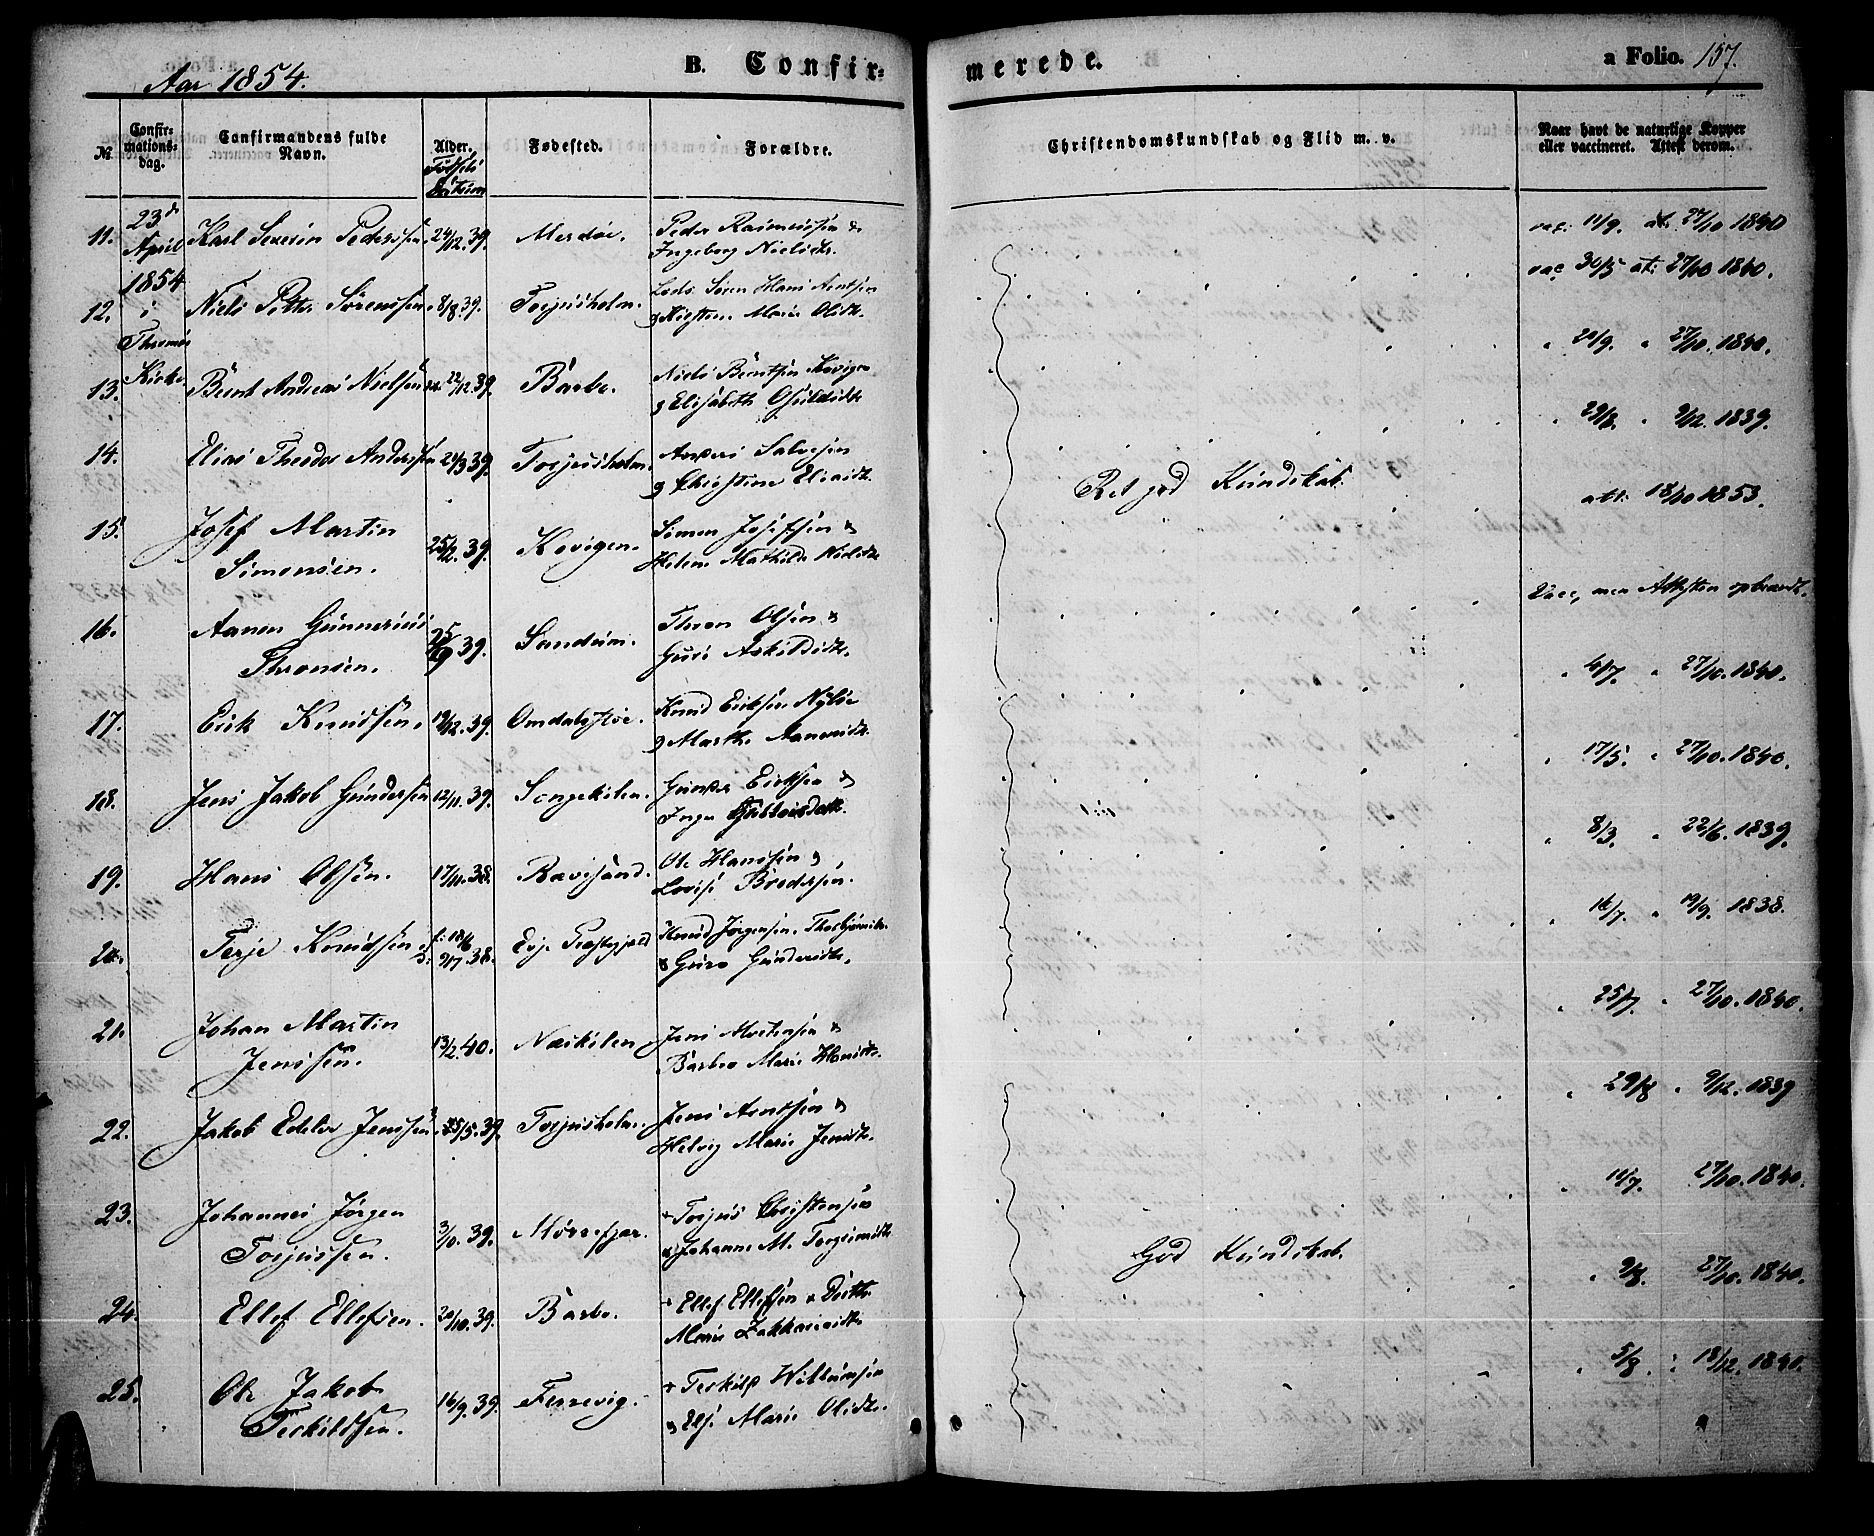 Aar 1854.
B. Confir-
merede.
a Folio. 157.
№
Confir-
mations-
dag.
Confirmandens fulde
Navn.
Alder.
Fødsels
Datum
Fødested.
Forældre.
Christendomskundskab og Flid m. v.
Naar havt de naturlige Kopper
eller vaccineret. Attest derom.
23de
April
1854
i
Kirke
11. Karl Severin Pederssen 24/12.39. Merdøe. Peder Rasmussen &
Ingeborg Nielsdtr. vac. 11/9. at. 27/10 1840
12. Niels Petter Sørenssen 8/8.39. Torjusholm. Lods Søren Hans Arntsen
& Kirsten Marie Olsdtr. vac 30/5 at. 27/10 1840.
13. Bernt Andreas Nielsen 22/12.39. Barbo. Niels Berntsen Kovigen
& Elisabeth 20/9. " 27/10.1840.
14. Elias Theodor Anderssen 24/3 39. Torjusholm. Anders Salvesen
& Christine Eliasdtr. 29/8. " 9/12.1839.
15. Josef Martin
Simonsen. 25/12.39. Kovigen. Simon Josefsen &
Helene Mathilde Nielsdtr. Ret god Kundskab. att. 18/10 1853.
16. Aanon Gunnerius
Thronsen. 25/9 39. Sandum. Thron Olsen &
Guri Askildsdtr. Vacc, men Attesten opbrændt.
17. Erik Knudsen. 19/12.39. Omdalsøe. Knud Eriksen
& Marthe Aanonsdtr. " 4/7. " 27/10.1840.
18. Jens Jakob Gundersen 12/11.39. Songekilen. Gunder Eriksen &
Inger 17/5. " 27/10.1840.
19. Hans Olsen. 17/11.38. Ravesand. Ole Hanssen &
Lovise Brodersen. " 8/3. " 22/6.1839.
20. Terje Knudsen f: 18/6
d: 9/7 38. Evje Præstegjeld Knud Jørgensen
& Guro Gundersdtr. 16/7. " 19/9. 1838.
21. Johan Martin
Jenssen. 13/2.40. Næskilen Jens Mortensen &
Barbro Marie Hansdtr. " 25/7. " 27/10.1840.
22. Jakob Edelev Jenssen 25/5.39. Torjusholm. Jens Arntsen &
Helvig Marie Jensdtr. " 29/8 " 9/12.1839
23. Johannes Jørgen
Torjussen. 3/10.39. Mørefjær. + Torjus Christensen
& Johanne M. Torgrimsdtr. " 10/7. 27/10.1840.
24. Ellef Ellefsen. 20/10.39. Barbo. + Ellef Ellefsen & Dorthe
Marie Zakkariasdtr. God Kundskab. " 9/8. 27/10.1840.
25. Ole Jakob
Terkildsen. 16/9.39. Færevig. + Terkild Willumsen
& Else Marie Olsdtr. " 5/8. " 18/12.1840.